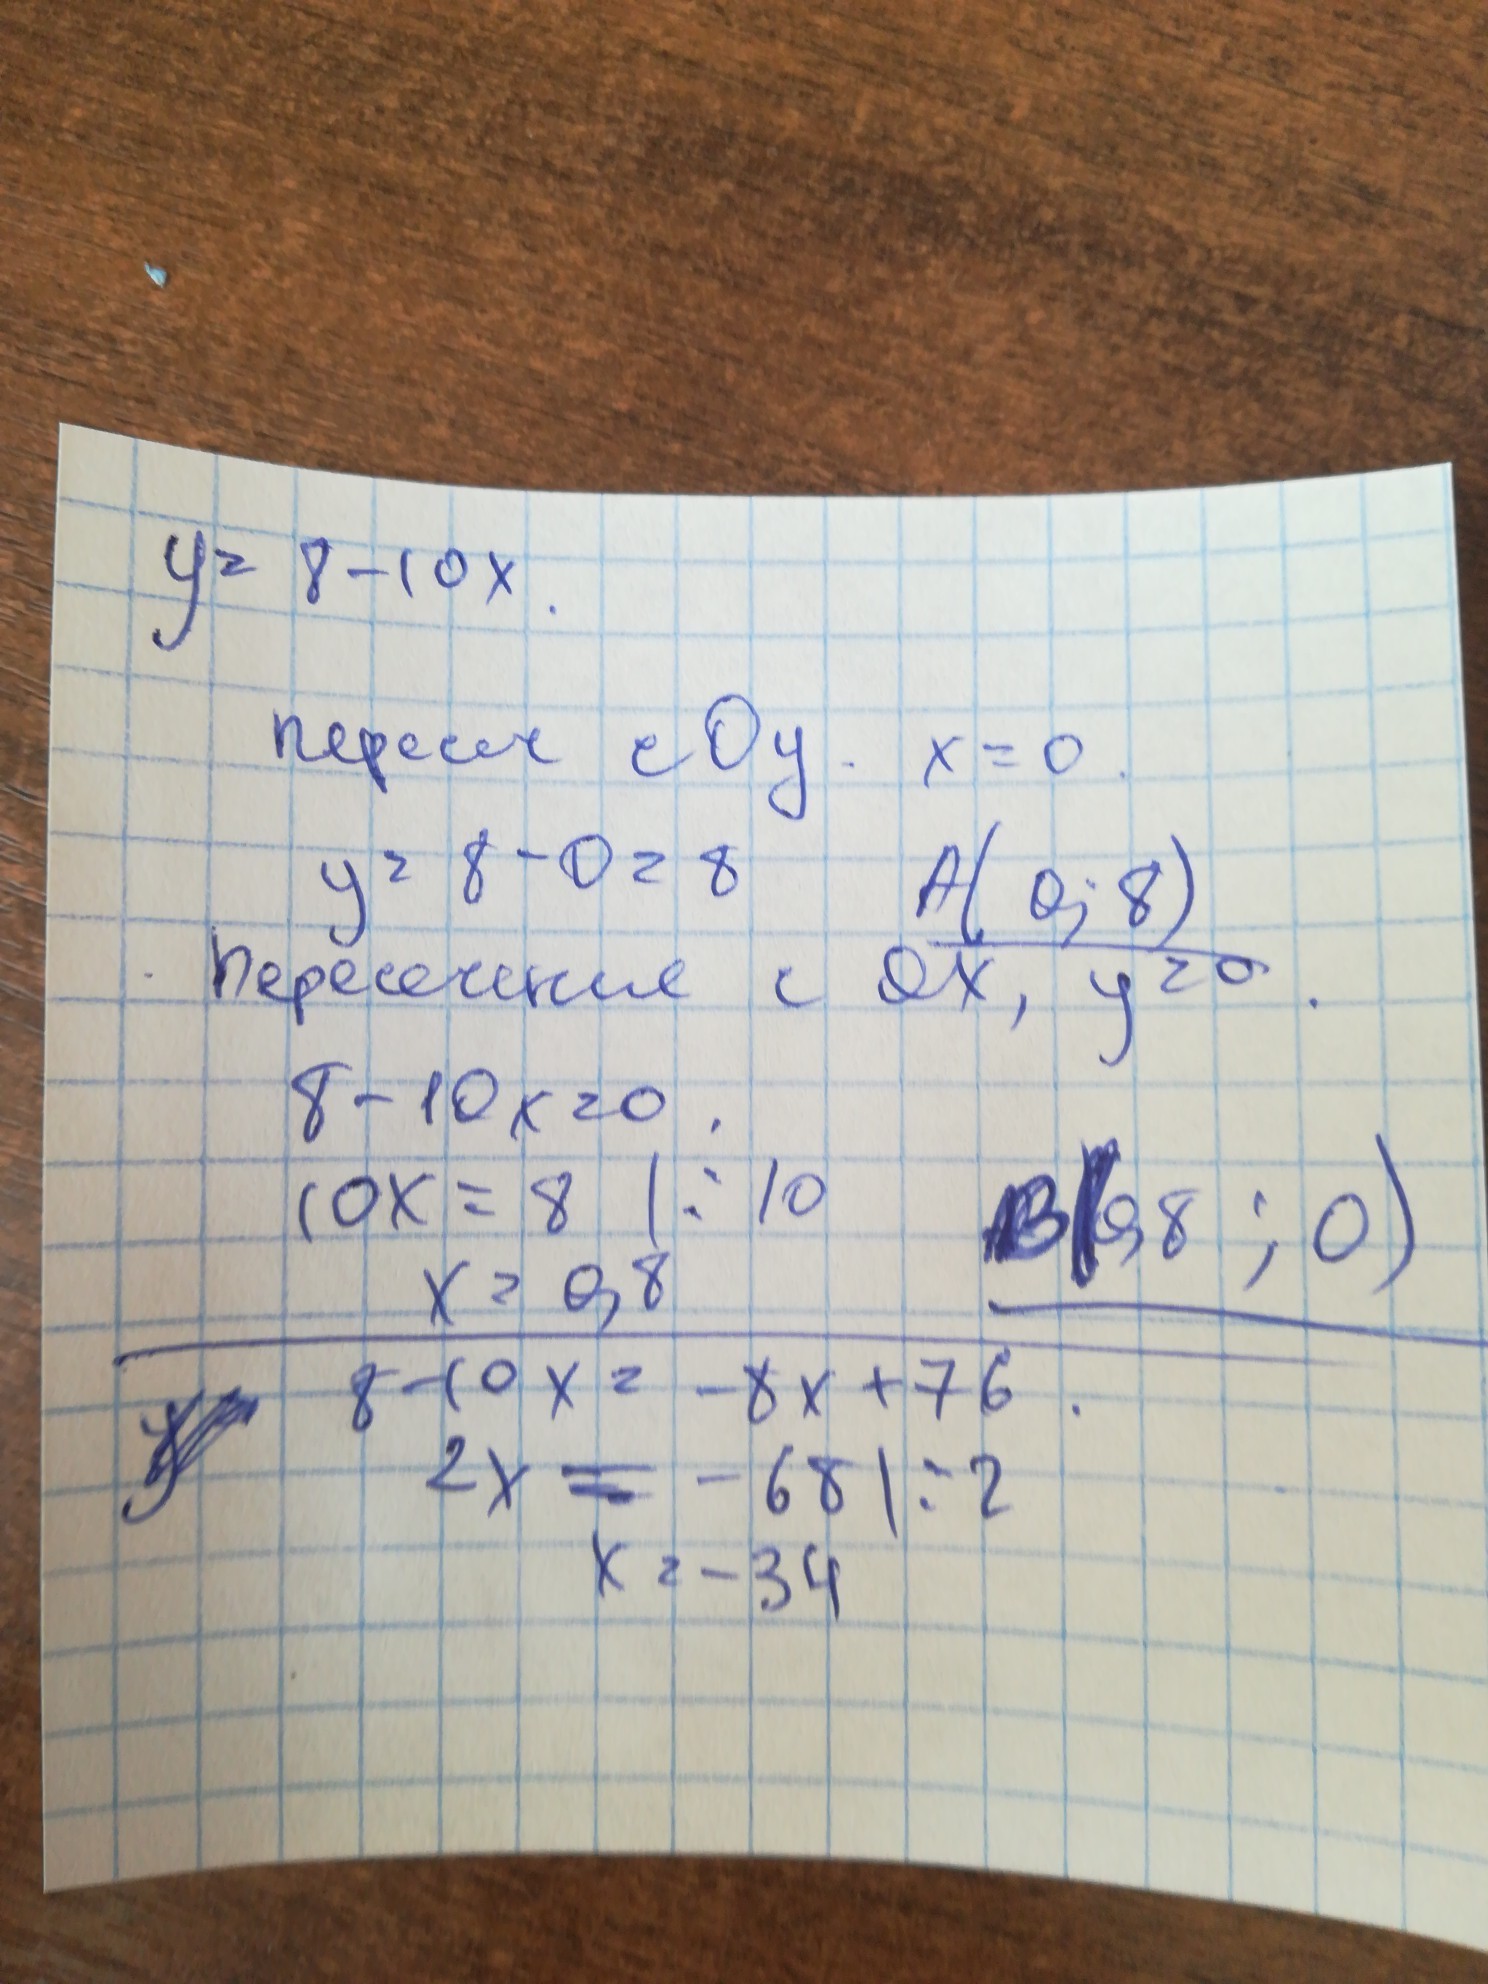 y = 8 - 10x.
Пересеч с Oy. x = 0.
y = 8 - 0 = 8 A(0; 8)
Пересечение с Ox, y = 0.
8 - 10x = 0.
10x = 8 |: 10
B(0,8 ; 0)
x = 0,8
8 - 10x = -8x + 76.
2x = -68 |: 2
x = -34